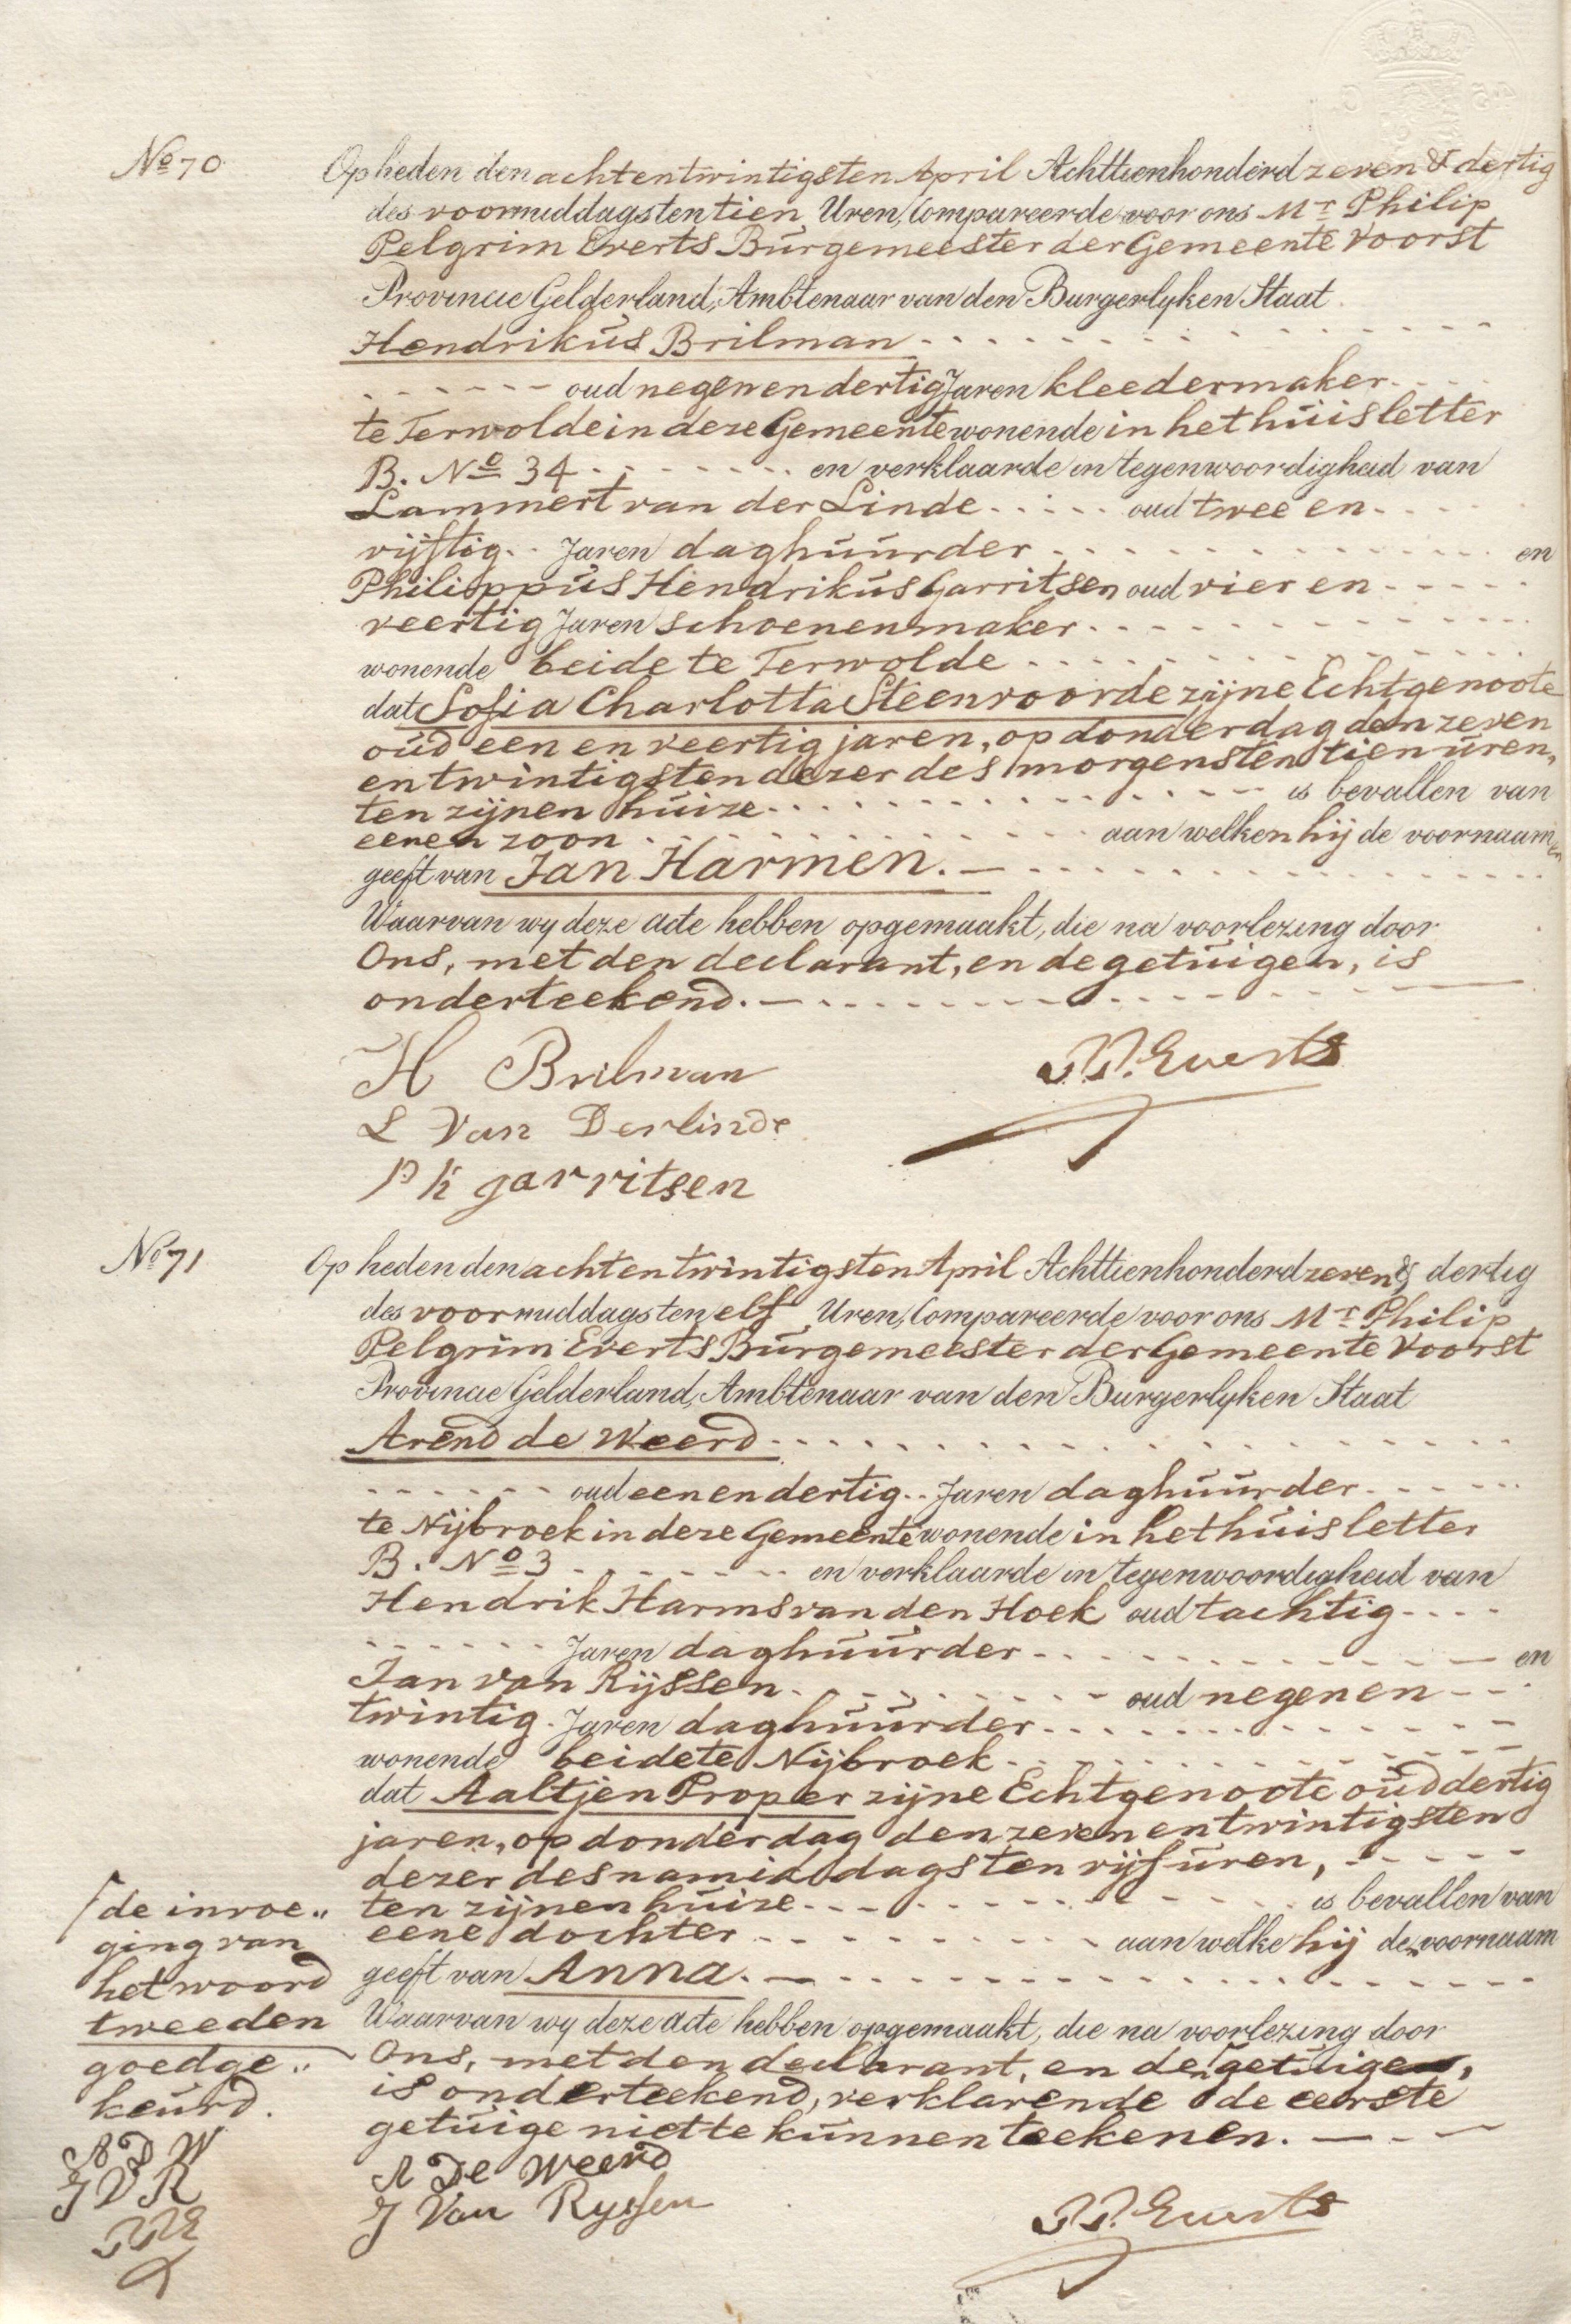 No 70
Op heden den achtentwintigsten April Achttienhonderd zeven & dertig
des voormiddags ten tien Uren, Compareerde voor ons Mr Philip
Pelgrim Everts Burgemeester der Gemeente Voorst
Provincie Gelderland, Ambtenaar van den Burgerlyken Staat
Hendrikus Brilman
oud negenendertig Jaren kleedermaker
te Terwolde in deze Gemeente wonende in het huis letter
B. No 34 en verklaarde in tegenwoordigheid van
Lammert van der Linde oud twee en
vijftig Jaren daghuurder en
Philippus Hendrikus Garritsen oud vier en
veertig Jaren schoenenmaker
wonende beide te Terwolde
dat Sofia Charlotta Steenvoorde zijne Echtgenoote
oud een en veertig jaren, op donderdag den zeven
entwintigsten dezer des morgens ten tien uren,
ten zijnen huize is bevallen van
eenen zoon aan welken hij de voornaamen
geeft van Jan Harmen.
Waarvan wy deze acte hebben opgemaakt, die na voorlezing door
Ons, met den declarant, en de getuigen, is
onderteekend.
H Brilman
P.P. Everts
L Van Derlinde
P h garritsen
No 71
Op heden den achtentwintigsten April Achttienhonderd zeven & dertig
des voormiddags ten elf Uren, Compareerde voor ons Mr Philip
Pelgrim Everts Burgemeester der Gemeente Voorst
Provincie Gelderland, Ambtenaar van den Burgerlyken Staat
Arend de Weerd
oud eenendertig Jaren daghuurder
te Nijbroek in deze Gemeente wonende in het huis letter
B. No 3 en verklaarde in tegenwoordigheid van
Hendrik Harms van den Hoek oud tachtig
Jaren daghuurder en
Jan van Rijssen oud negenen
twintig Jaren daghuurder
wonende beide te Nijbroek
dat Aaltjen Proper zijne Echtgenoote oud dertig
jaren, op donderdag den zevenentwintigsten
dezer des namiddags ten vijf uren,
ten zijnen huize is bevallen van
eene dochter aan welke hij den voornaam
geeft van Anna.
Waarvan wy deze acte hebben opgemaakt, die na voorlezing door
Ons, met den declarant, en den getuige,
is onderteekend, verklarende de eerste
getuige niet te kunnen teekenen.
A De Weerd
J Van Ryssen
P.P. Everts
de invoe„
ging van
het woord
tweeden
goedge„
keurd.
A D W
J V R
PPE